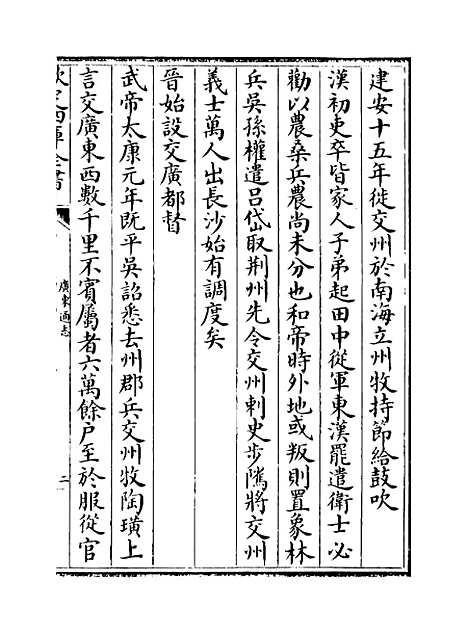 建安十五年徙交州於南海立州牧持節給鼓吹
漢初吏卒皆家人子弟起田中從軍東漢罷遣衛士必
勸以農桑兵農尚未分也和帝時外地或叛則置象林
兵吳孫權遣吕岱取荆州先令交州刺史步隲將交州
義士萬人出長沙始有調度矣
晉始設交廣都督
武帝太康元年既平吳詔悉去州郡兵交州牧陶璜上
言交廣東西數千里不賓屬者六萬餘户至於服從官
欽定四庫全書
廣東通志
二